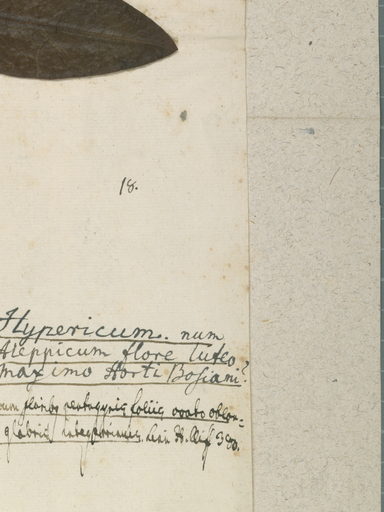 18.
Hypericum. num
Aleppicum flore luteo
maximo Horti Bosiani?
floribus pentagynis foliis ovato oblon=
glabris integerrimis. Linn H. Cliff 380.